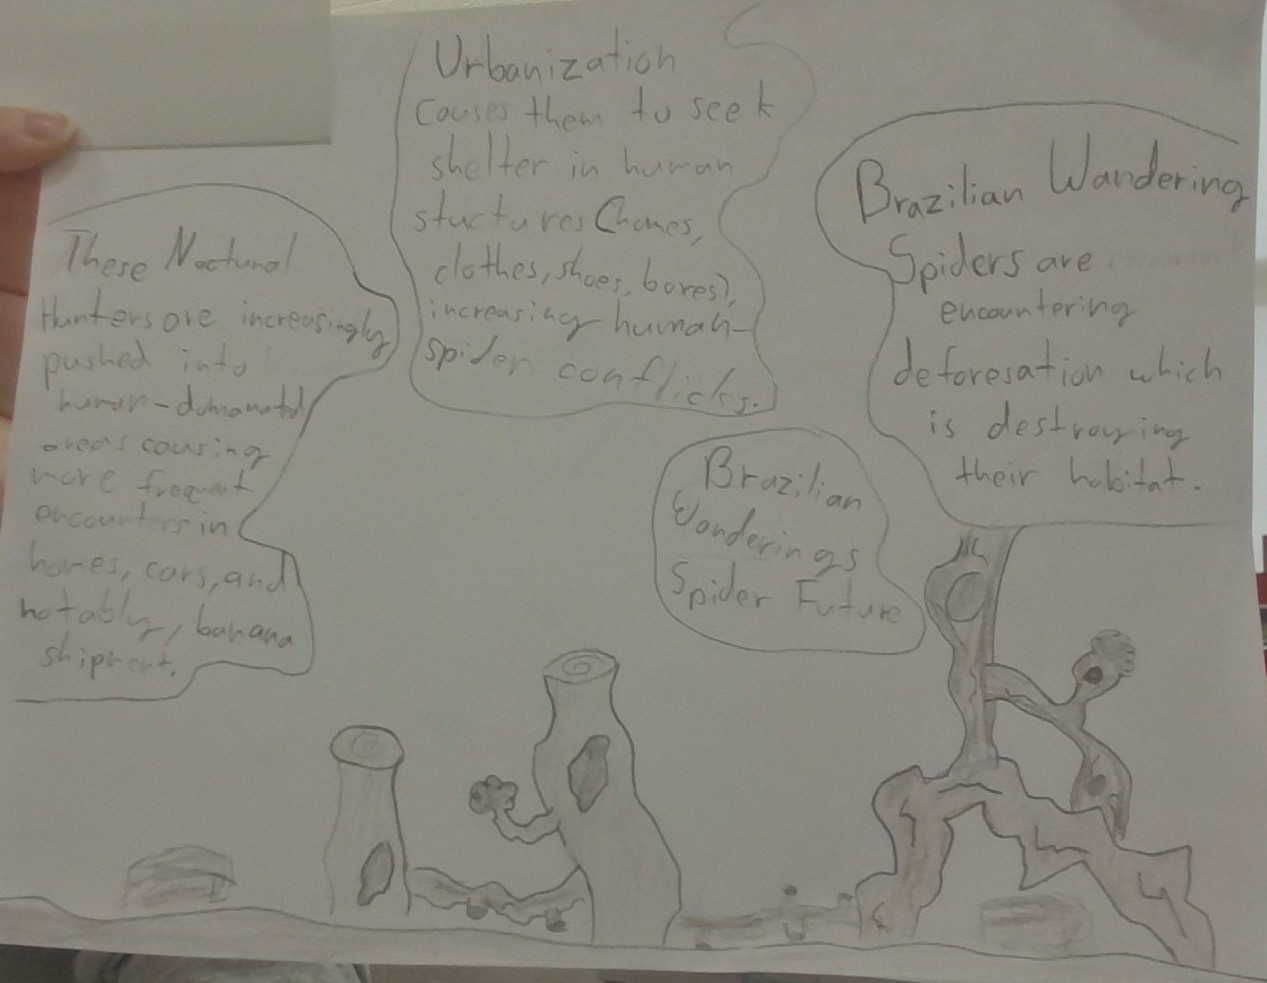 Urbanization
causes them to seek
shelter in human
stuctures (homes,
clothes, shoes, boxes),
increasing human-
spider conflicks.
Brazilian Wandering
Spiders are
encountering
deforesation which
is destroying
their habitat.
These Noctunal
Hunters are increasingly
pushed into
human-domanatd
areas cousing
more frequent
encounters in
homes, cars, and
notably, banana
shipment.
Brazilian
Wonderings
Spider Future